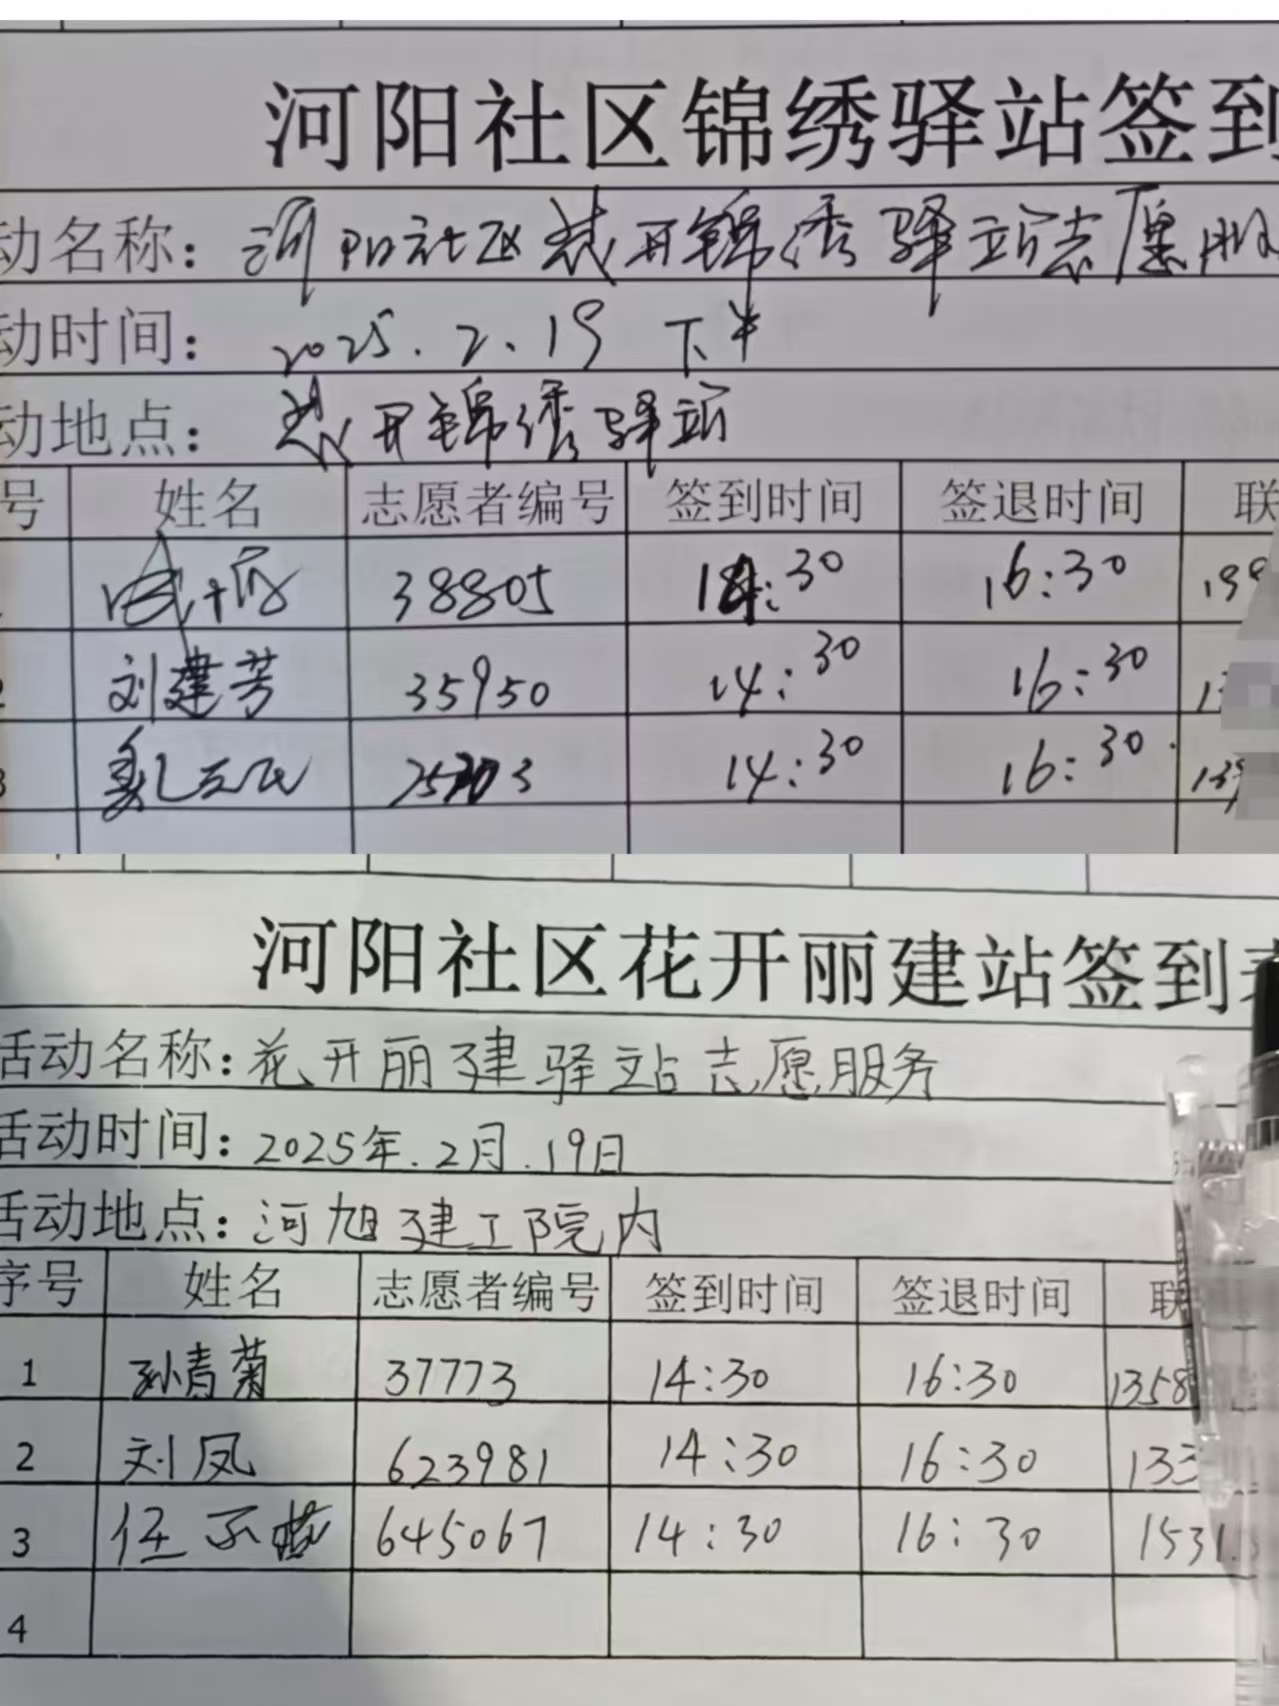 河阳社区锦绣驿站签到
动名称：河阳社区花开锦绣驿站志愿服
动时间：2025.2.19 下午
动地点：花开锦绣驿站
号 姓名 志愿者编号 签到时间 签退时间 联
38805 14:30 16:30 199
2 刘建芳 35950 14:30 16:30 13
3 14:30 16:30 139
河阳社区花开丽建站签到表
活动名称：花开丽建驿站志愿服务
活动时间：2025年.2月.19日
活动地点：河旭建工院内
序号 姓名 志愿者编号 签到时间 签退时间 联
1 孙青菊 37773 14:30 16:30 1358
2 刘凤 623981 14:30 16:30 133
3 任 645067 14:30 16:30 1531
4